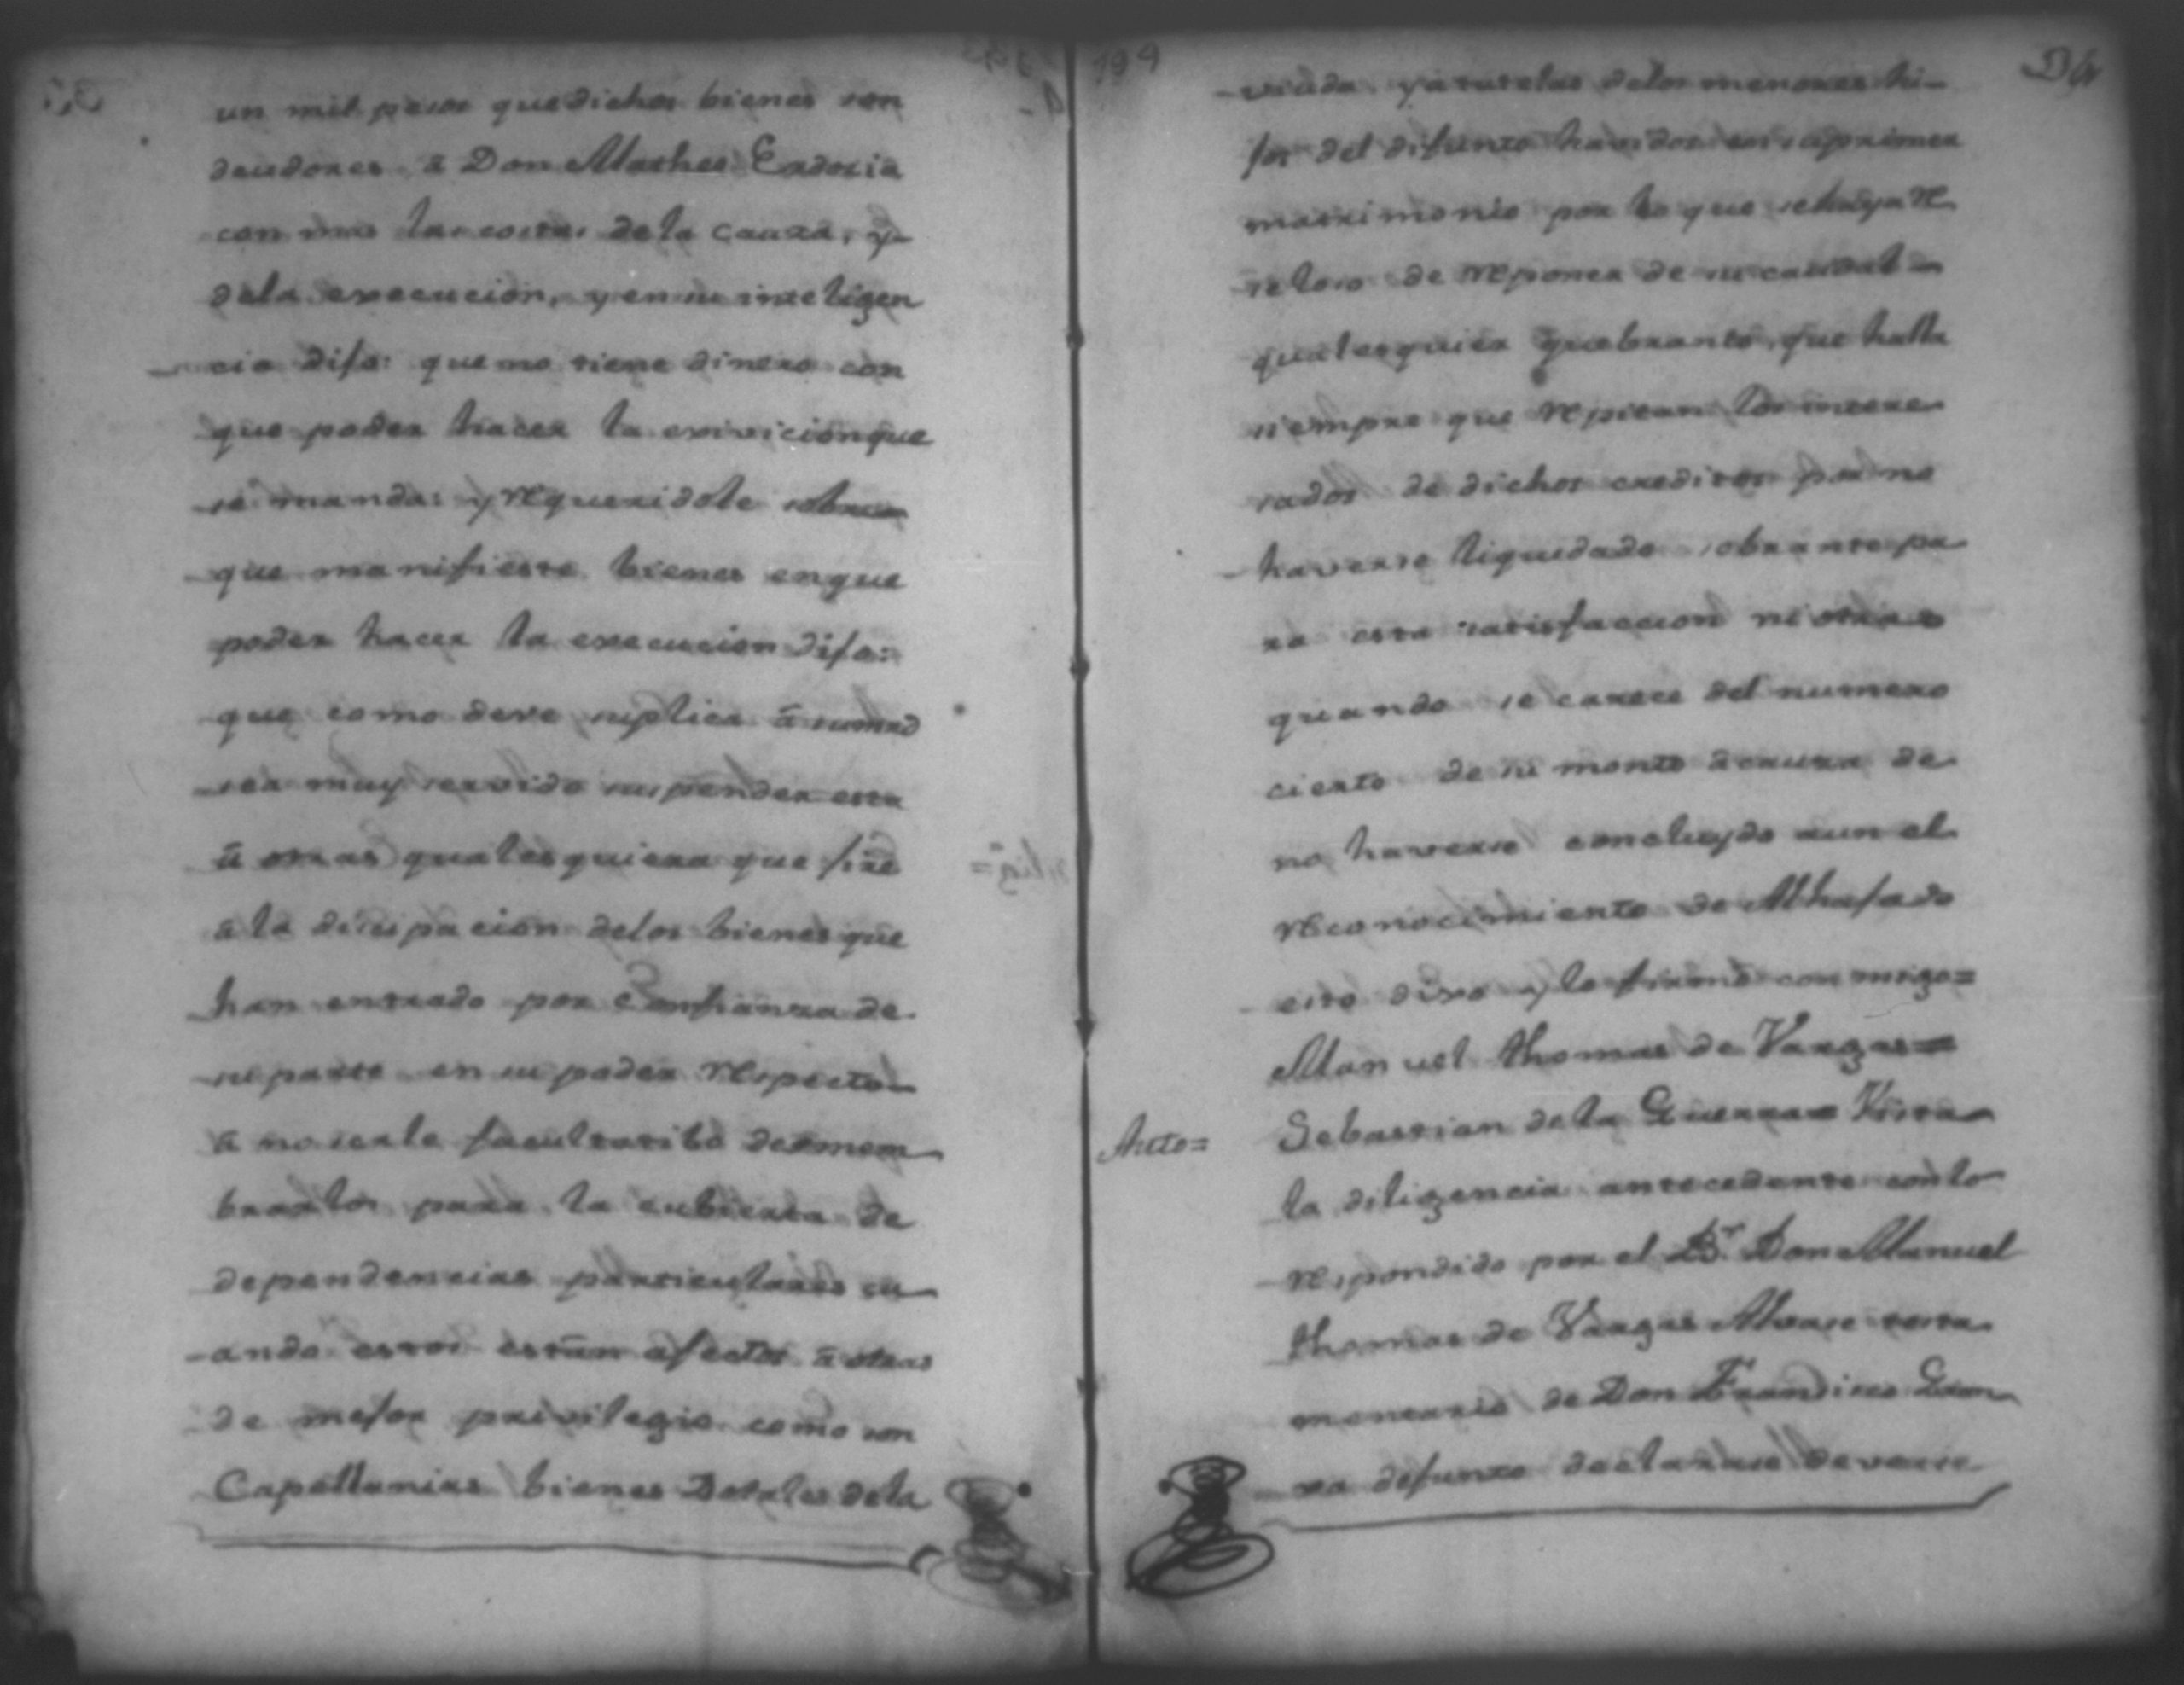 un mil pesos que dichos bienes son
deudores â Don Matheo Endosia
con mas las costas dela cauza, y
dela execucion, y en su inteligen
cia dijo: que no tiene dinero con
que poder hacer la exivicion que
se manda: y requeridole sobre
que manifieste bienes enque
poder hacer la execucion dijo:
que como deve suplica â sumrd
sea muy servido suspender esta
û otras qualesquiera que tire
âla dicipacion delos bienes que
han entrado por Confianza de
su parte en su poder respecto
â no serle facultatibo desmem
brarlos para la cubierta de
dependencias particulares cu
ando estos estan afectos â otras
de mejor privilegio como son
Capellanias bienes Dotales dela
199
viuda y atutelas delos menores hi-
jos del difunto havidos en su primer
matrimonio por lo que se haya re
celoso de reponer de su caudal
qualesquier quebranto, que halla
siempre que repitan los intere
sados de dichos creditos por no
haverse liquidado sobrante pa
ra esta satisfaccion ni otras
quando se carece del numero
cierto de su monto acauza de
no haverse concluydo aun el
reconocimiento de Alhajado
esto dixo y lo firmó con migo=
Manuel thomas de Vargas=
Auto=
Sebastian dela Guerra= Vista
la diligencia antecedente conlo
respondido por el Br. Don Manuel
thomas de Vargas Alvase testa
mentario de Don Francisco Gran
ra defunto declarase deverse